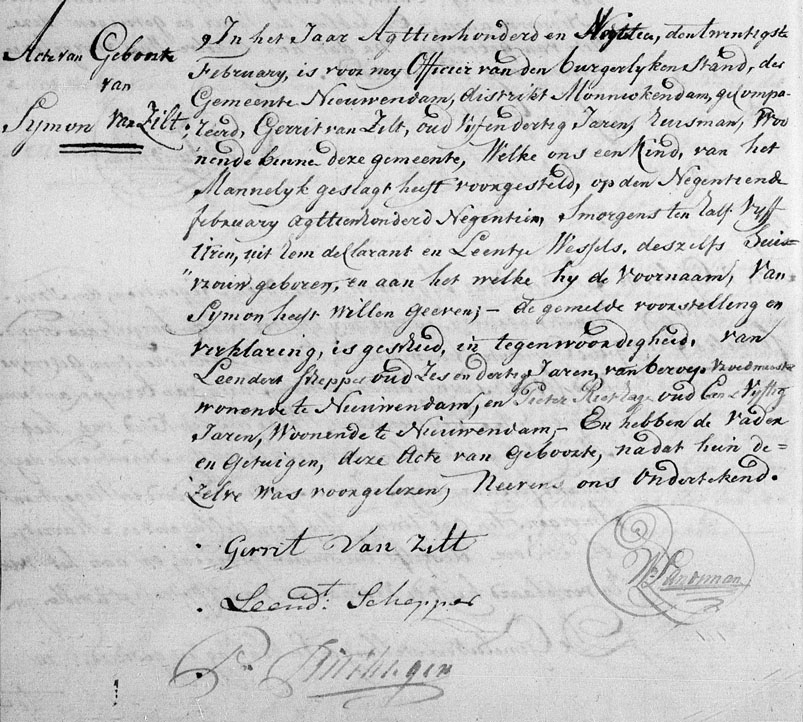 Acte van Geboorte
van
Symon Van Zilt.
In het Jaar Agttienhonderd en Negentien, den twintigste
February, is voor my Officier van den burgerlyken Stand, des
Gemeente Nieuwendam, distrikt Monnickendam, gecompa-
reerd, Gerrit van Zilt, oud Vyf en dertig Jaren, huisman, Woo-
nende binnen deze gemeente, Welke ons een Kind, van het
Mannelyk geslagt heeft voorgesteld, op den Negentiende
february agttienhonderd Negentien, Smorgens ten half Vyff
Uren, uit hem declarant en Leentje Wessels, deszelfs Huis=
"vrouw geboren, en aan het welke hy de Voornaam, Van
Symon heeft Willen Geeven; – de gemelde voorstelling en
verklaring, is geschied, in tegenwoordigheid, van
Leendert Schepper oud Zes en dertig Jaren, van beroep
wonende te Nieuwendam, en Pieter oud Een & Vyftig
Jaren, Woonende te Nieuwendam, – En hebben de vader
en Getuigen, deze Acte van Geboorte, nadat hun de=
Zelve was voorgelezen, Neevens ons Ondertekend.
Gerrit Van Zilt
Leend.t Schepper